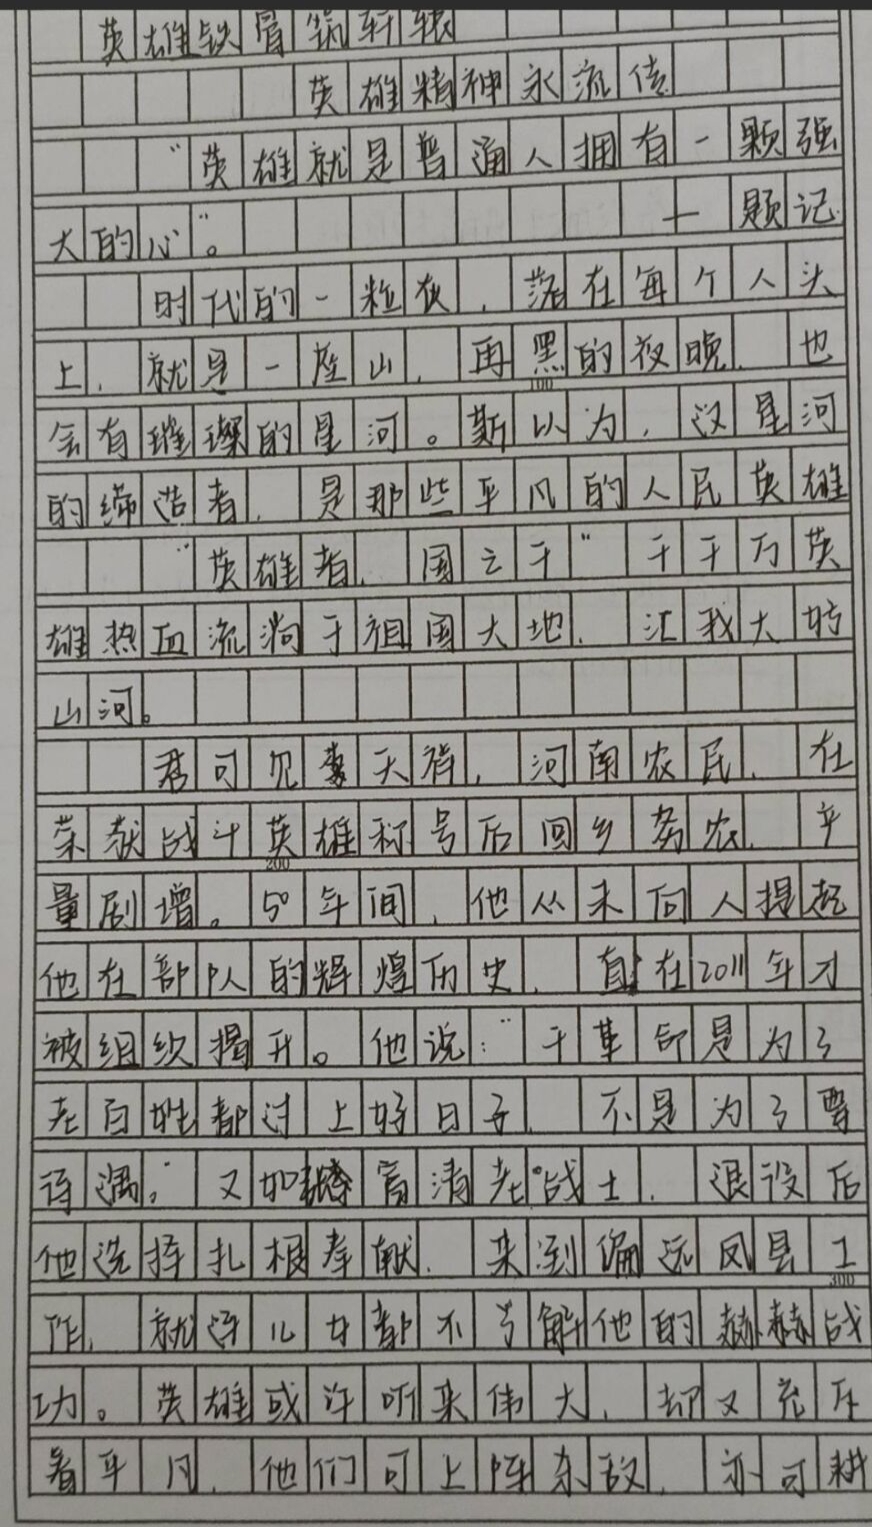 英雄铁骨筑轩辕
英雄精神永流传
"英雄就是普通人拥有一颗强
大的心"。 一题记
时代的一粒灰，落在每个人头
上，就是一座山，再黑的夜晚，也
100
会有璀璨的星河。斯以为，汉星河
的缔造者，是那些平凡的人民英雄
"英雄者，国之干"千千万英
雄热血流淌于祖国大地，汇我大好
山河。
君可见李天祥，河南农民，在
荣获战斗英雄称号后回乡务农，辛
200
量剧增。50年间，他从未向人提起
他在部队的辉煌历史，直在2011年才
被组织揭开。他说："干革命是为了
老百姓都过上好日子，不是为了要
待遇。"又如富清老战士，退役后
他选择扎根奉献，来到偏远凤县工
300
作，就连儿女都不了解他的赫赫战
功。英雄或许听来伟大，却又充斥
着平凡，他们可上阵杀敌，亦可耕